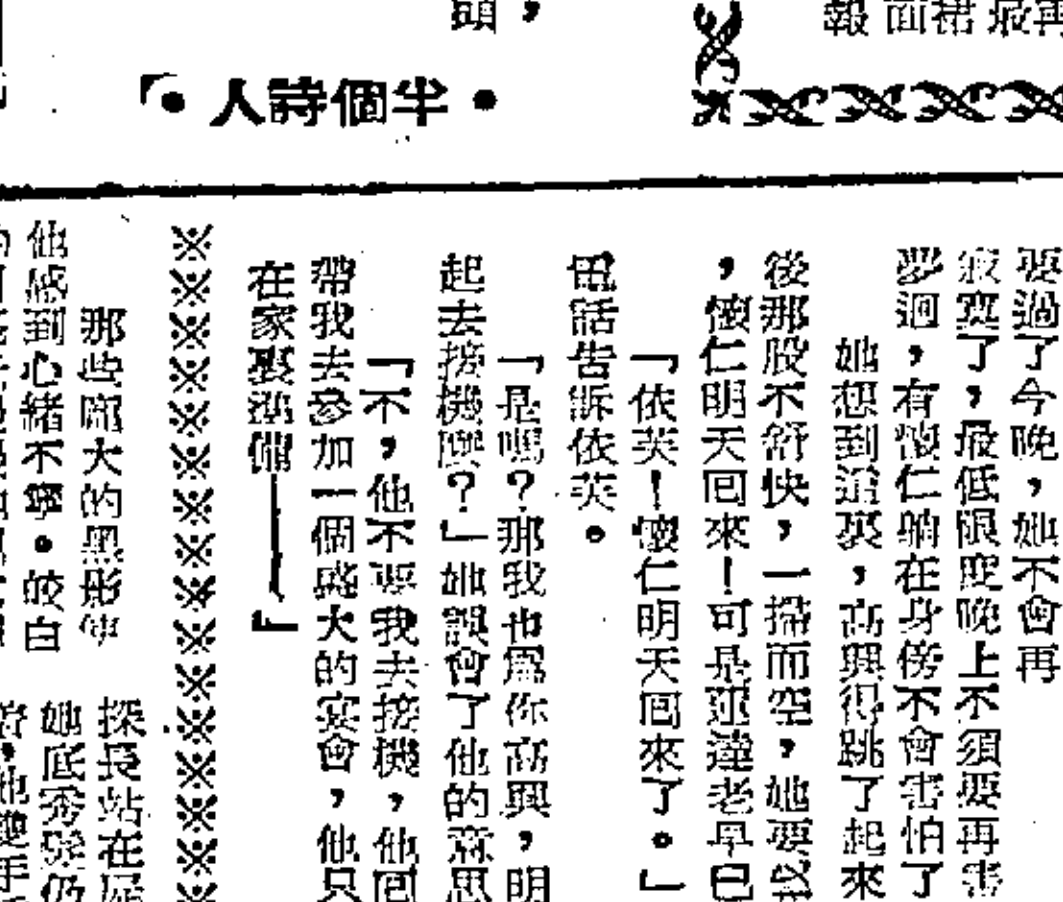 報面裙最再
頭,
「•人詩個半•
要過了今晚,她不會再
寂寞了,最低限度晚上不須要再害
夢迴,有懷仁躺在身傍不會害怕了
她想到這裏,高興得跳了起來
後那股不舒快,一掃而空,她要以
,懷仁明天回來!可是亞達老早已
「依芙!懷仁明天回來了。」
電話告訴依芙。
「是嗎?那我也爲你高興,明
起去接機麽?」她誤會了他的意思
「不,他不要我去接機,他回
帶我去參加一個盛大的宴會,他只
在家裏泓備——」
※※※※※※※※※※※※※※
那些龐大的黑影使
他感到心緒不寧。皎白
探長站在屋
她底秀髮仍
他雙手